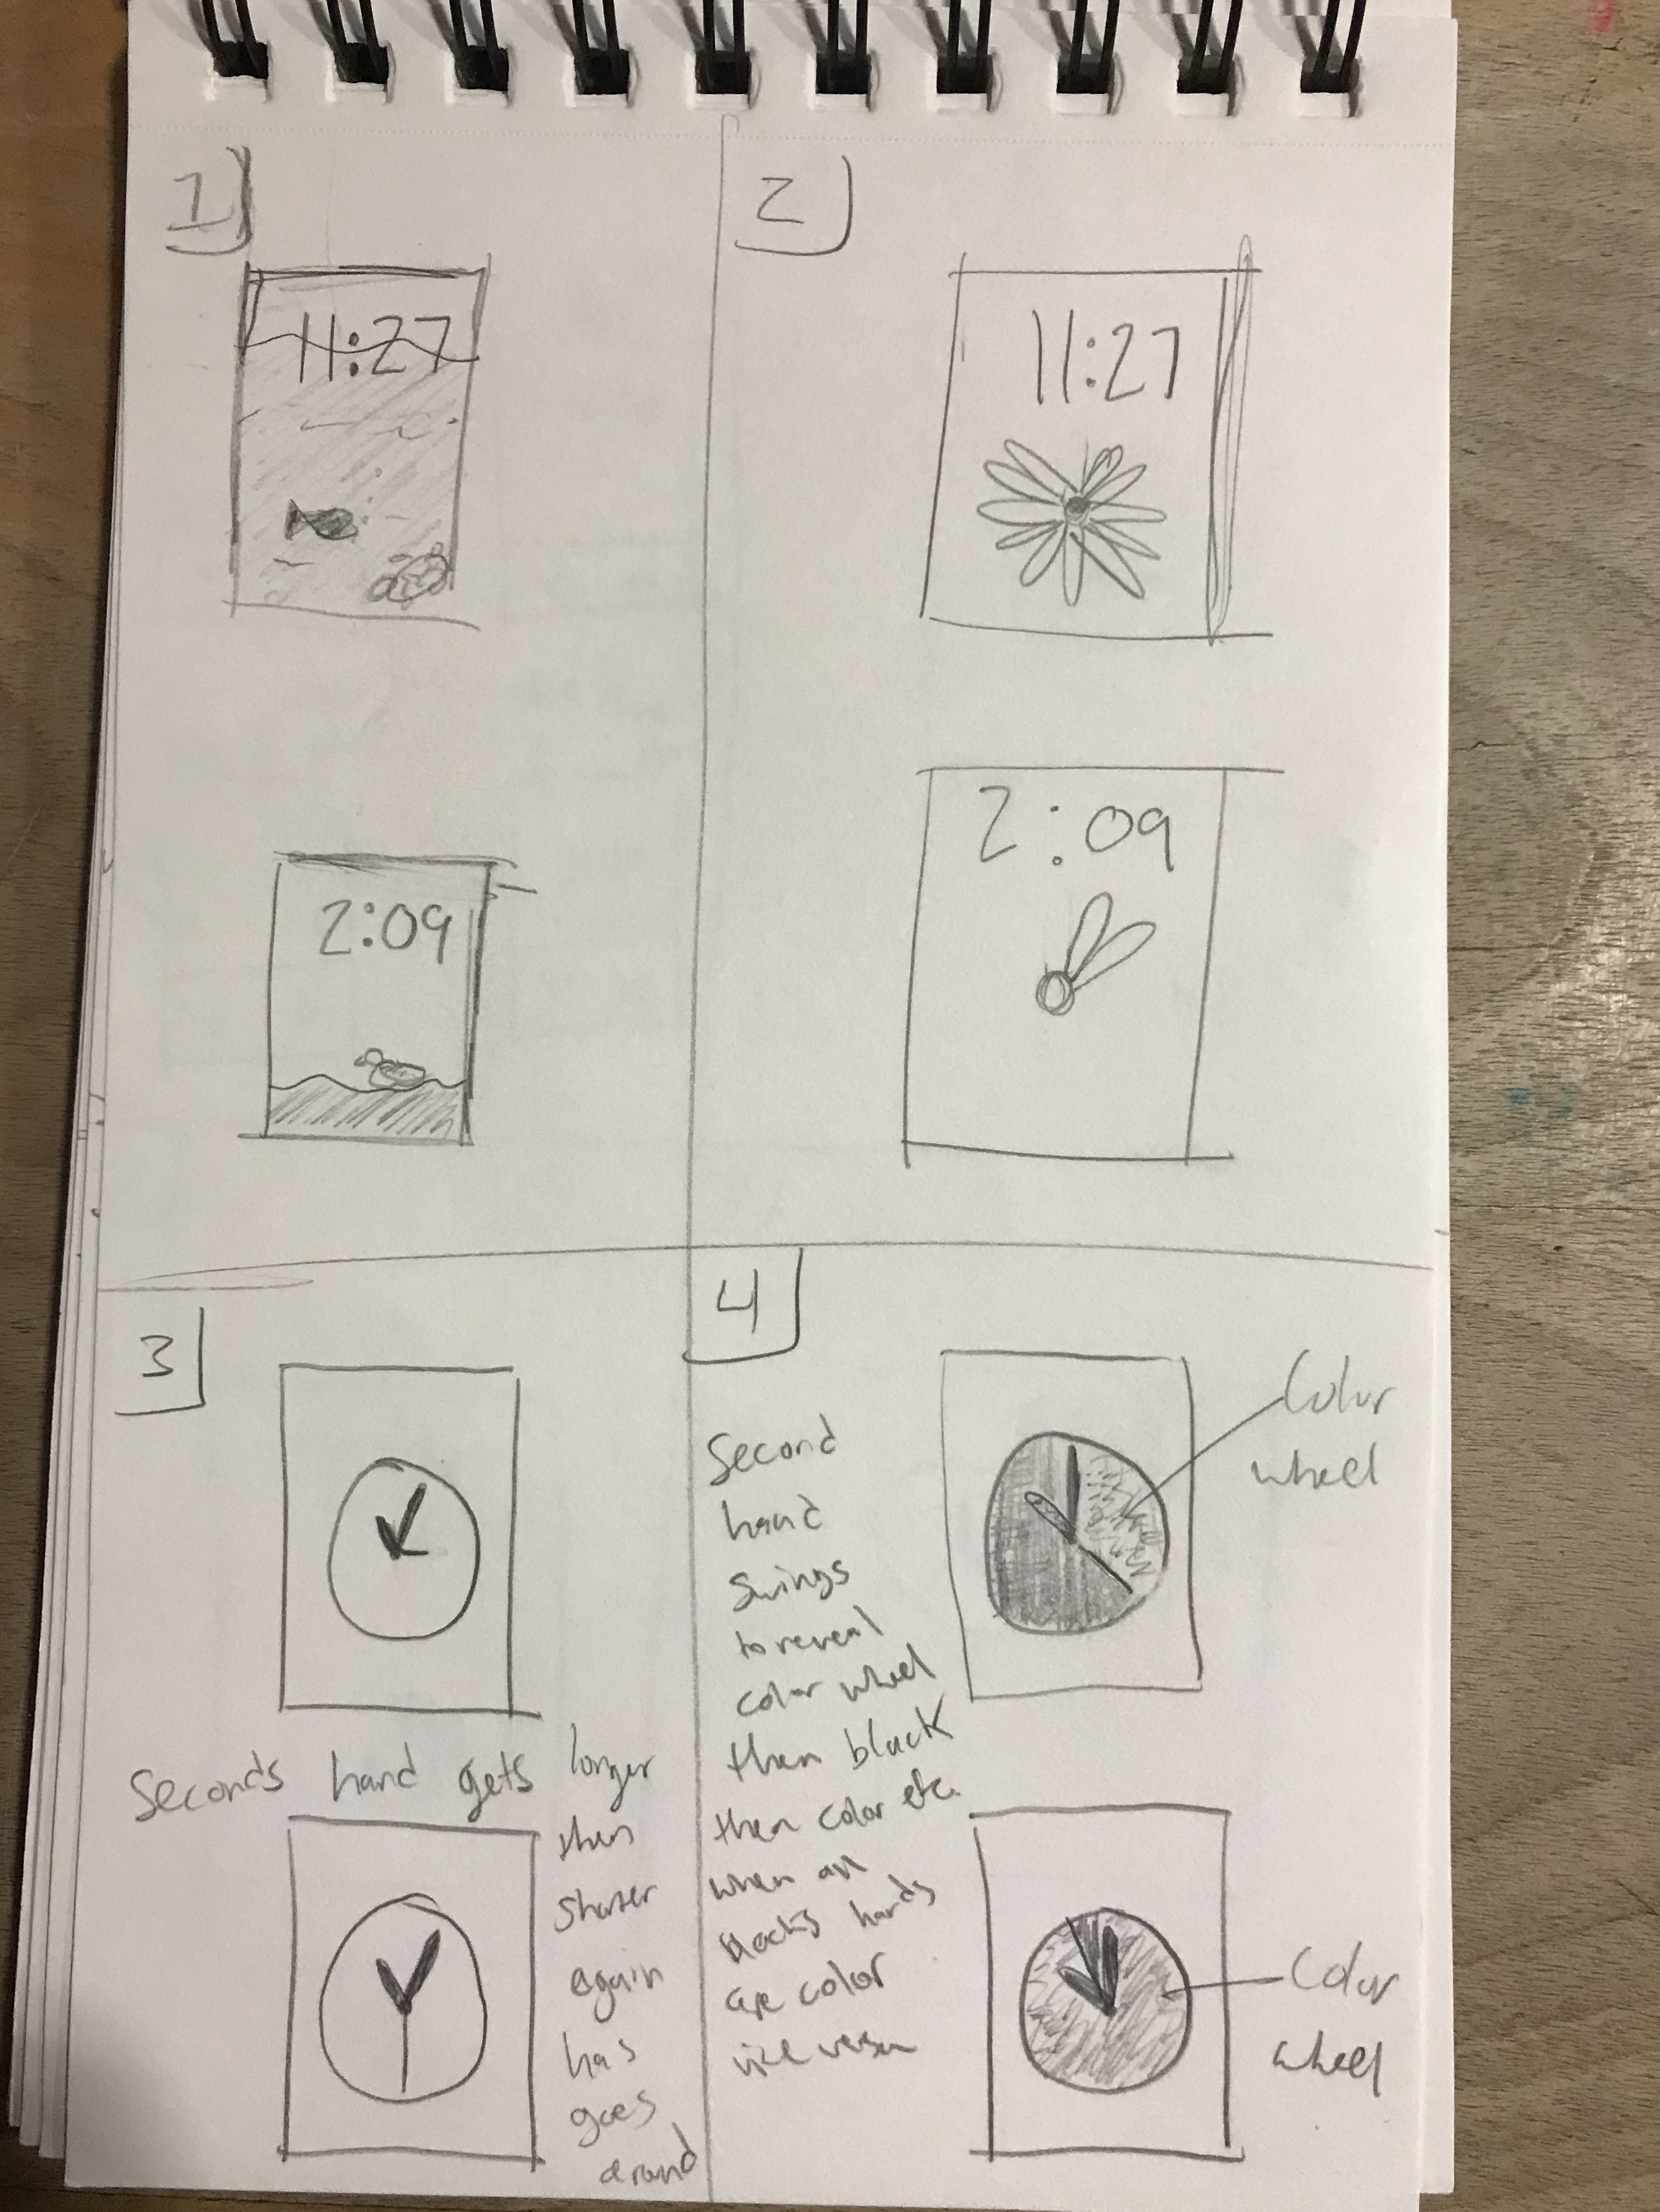 1
11:27
2:09
2
11:27
2:09
3
Seconds hand gets longer
then
shorter
again
has
goes
around
4
Second
hand
swings
to reveal
color wheel
then black
then color etc.
when all
black hands
are color
vice versa
Color
wheel
Color
wheel